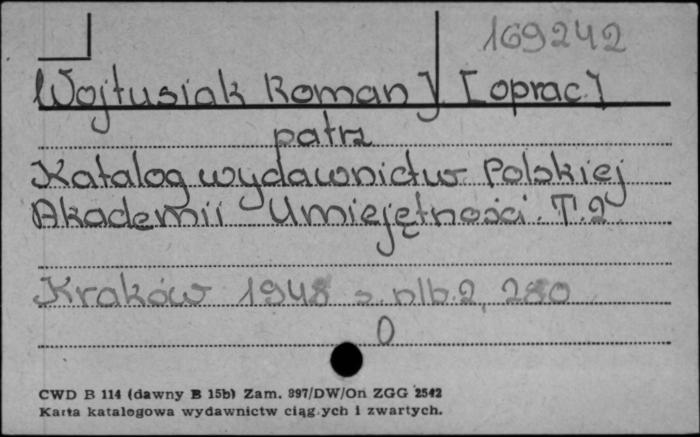 169242
Wojtusiak Roman J [oprac.]
patrz
Katalog wydawnictw Polskiej
Akademii Umiejętności. T. 2
Kraków 1948 s. nlb. 2, 280
0
CWD B 114 (dawny B 15b) Zam. 897/DW/On ZGG 2542
Karta katalogowa wydawnictw ciąg.ych i zwartych.